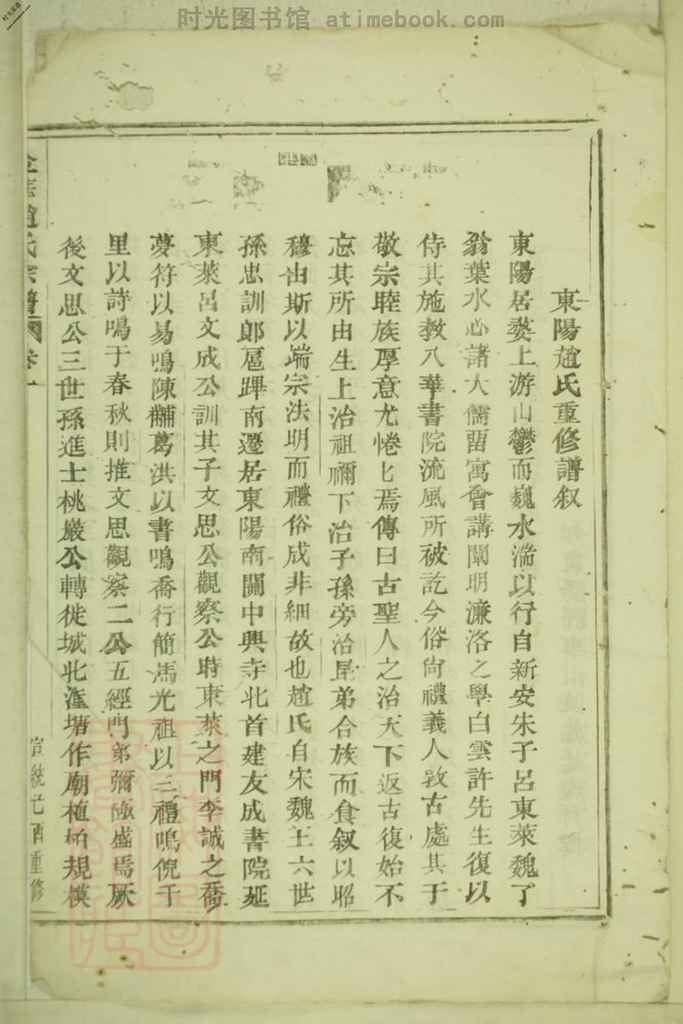 时光图书馆 atimebook.com
東陽趙氏重修譜叙
東陽居婺上游山鬱而巍水湍以行自新安朱子呂東萊魏了
翁葉水心諸大儒畱寓會講闡明濂洛之學白雲許先生復以
侍其施教八華書院流風所被訖今俗尙禮義人敦古處其于
敬宗睦族厚意尤惓匕焉傳曰古聖人之治天下返古復始不
忘其所由生上治祖禰下治子孫旁治昆弟合族而食叙以昭
穆由斯以端宗法明而禮俗成非細故也趙氏自宋魏王六世
孫忠訓郎扈蹕南遷居東陽南關中興寺北首建友成書院延
東萊呂文成公訓其子文思公觀察公時東萊之門李誠之喬
夢符以易鳴陳黼葛洪以書鳴喬行簡馮光祖以三禮鳴倪千
里以詩鳴于春秋則推文思觀察二公五經門弟彌極盛焉厥
後文思公三世孫進士桃巖公轉徙城北滙塘作廟植柏規模
趙氏宗譜 卷一
宣統己酉重修